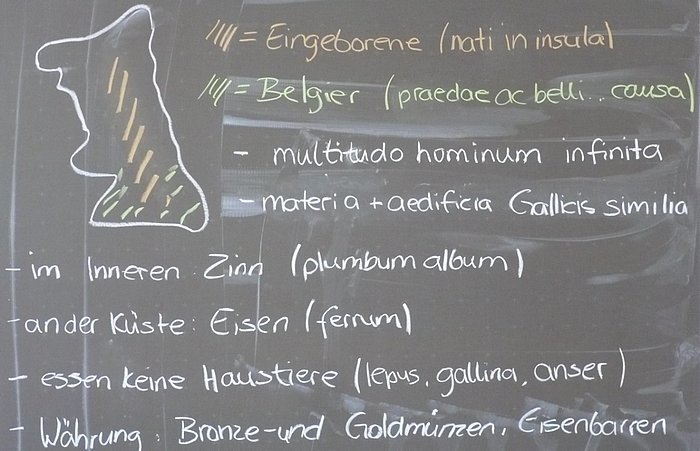 = Eingeborene (nati in insula)
= Belgier (praedae ac belli.. causa)
- multitudo hominum infinita
- materia + aedificia Gallicis similia
- im Inneren Zinn (plumbum album)
- an der Küste: Eisen (ferrum)
- essen keine Haustiere (lepus, gallina, anser)
- Währung: Bronze- und Goldmünzen, Eisenbarren